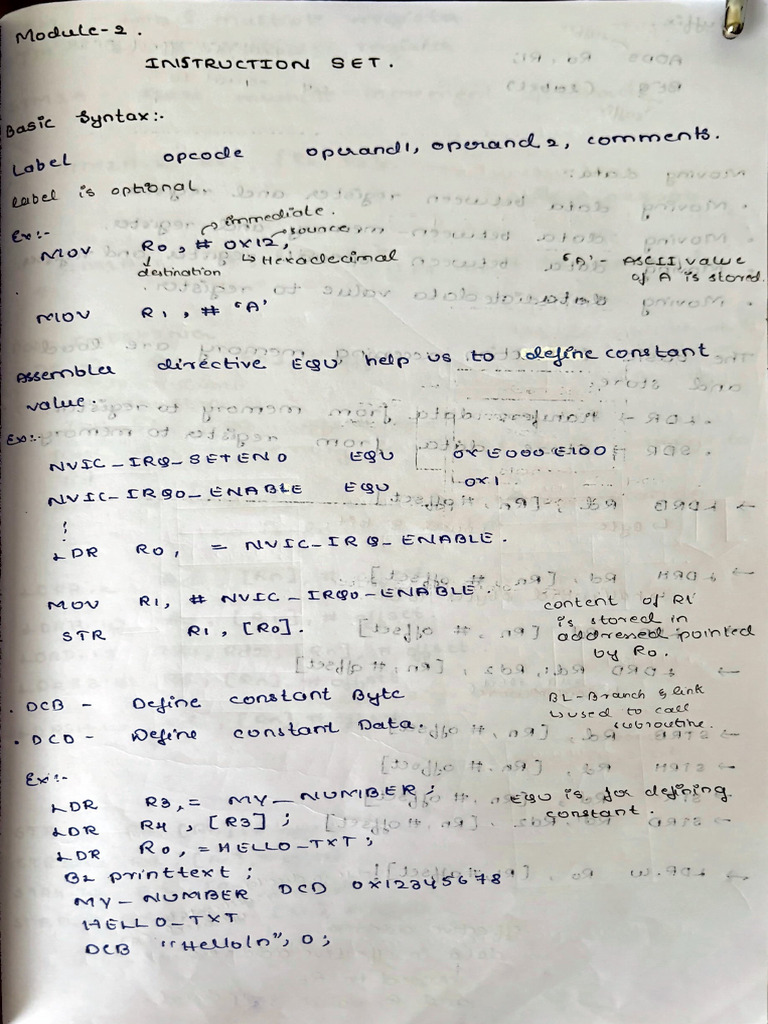 Module-2.
INSTRUCTION SET.
Basic Syntax:-
Label opcode operand1, operand2, comments.
Label is optional.
Ex:-
immediate.
source
MOV R0, # 0x12,
destination
Hexadecimal
'A' - ASCII value
of A is stored.
MOV R1, # 'A'
Assembler directive EQU help us to define constant
value.
Ex:-
NVIC_IRQ_SETEN0 EQU 0xE000E100
NVIC_IRQ0_ENABLE EQU 0x1
LDR R0, = NVIC_IRQ_ENABLE.
MOV R1, # NVIC_IRQ0_ENABLE.
STR R1, [R0].
content of R1
is stored in
addressed pointed
by R0.
. DCB - Define constant Byte
. DCD - Define constant Data.
BL - Branch & link
is used to call
subroutine.
Ex:-
LDR R3, = MY_NUMBER;
LDR R4, [R3];
LDR R0, = HELLO_TXT;
BL printtext;
MY_NUMBER DCD 0x12345678
HELLO_TXT
DCB "Hello\n", 0;
EQU is for defining
constant.